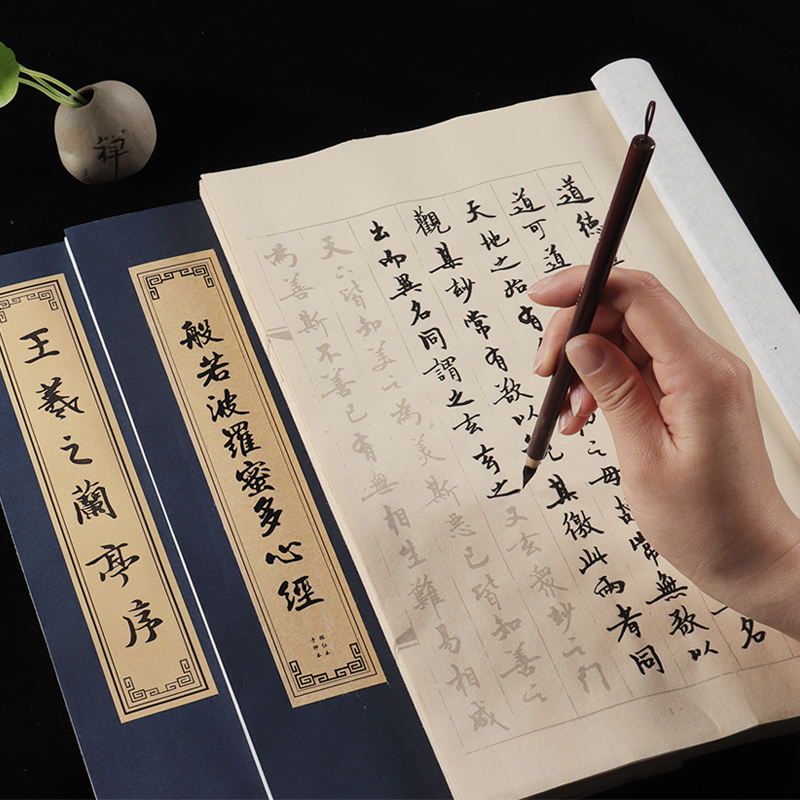 道德
道可道
名
天地之始有
之母故常無欲以
觀其妙常有欲以
其徼此兩者同
出而異名同謂之玄玄之又玄眾妙之門
天下皆知美之為美斯惡已皆知善之
為善斯不善已有無相生難易相成
般若波羅蜜多心經
王羲之蘭亭序
禪